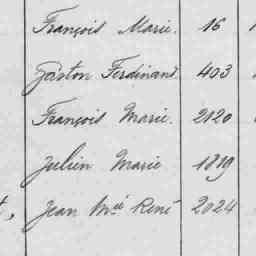 François Marie. 16
Gaston Ferdinand 403
François Marie. 2120
Julien Marie 1819
Jean Mie René 2024